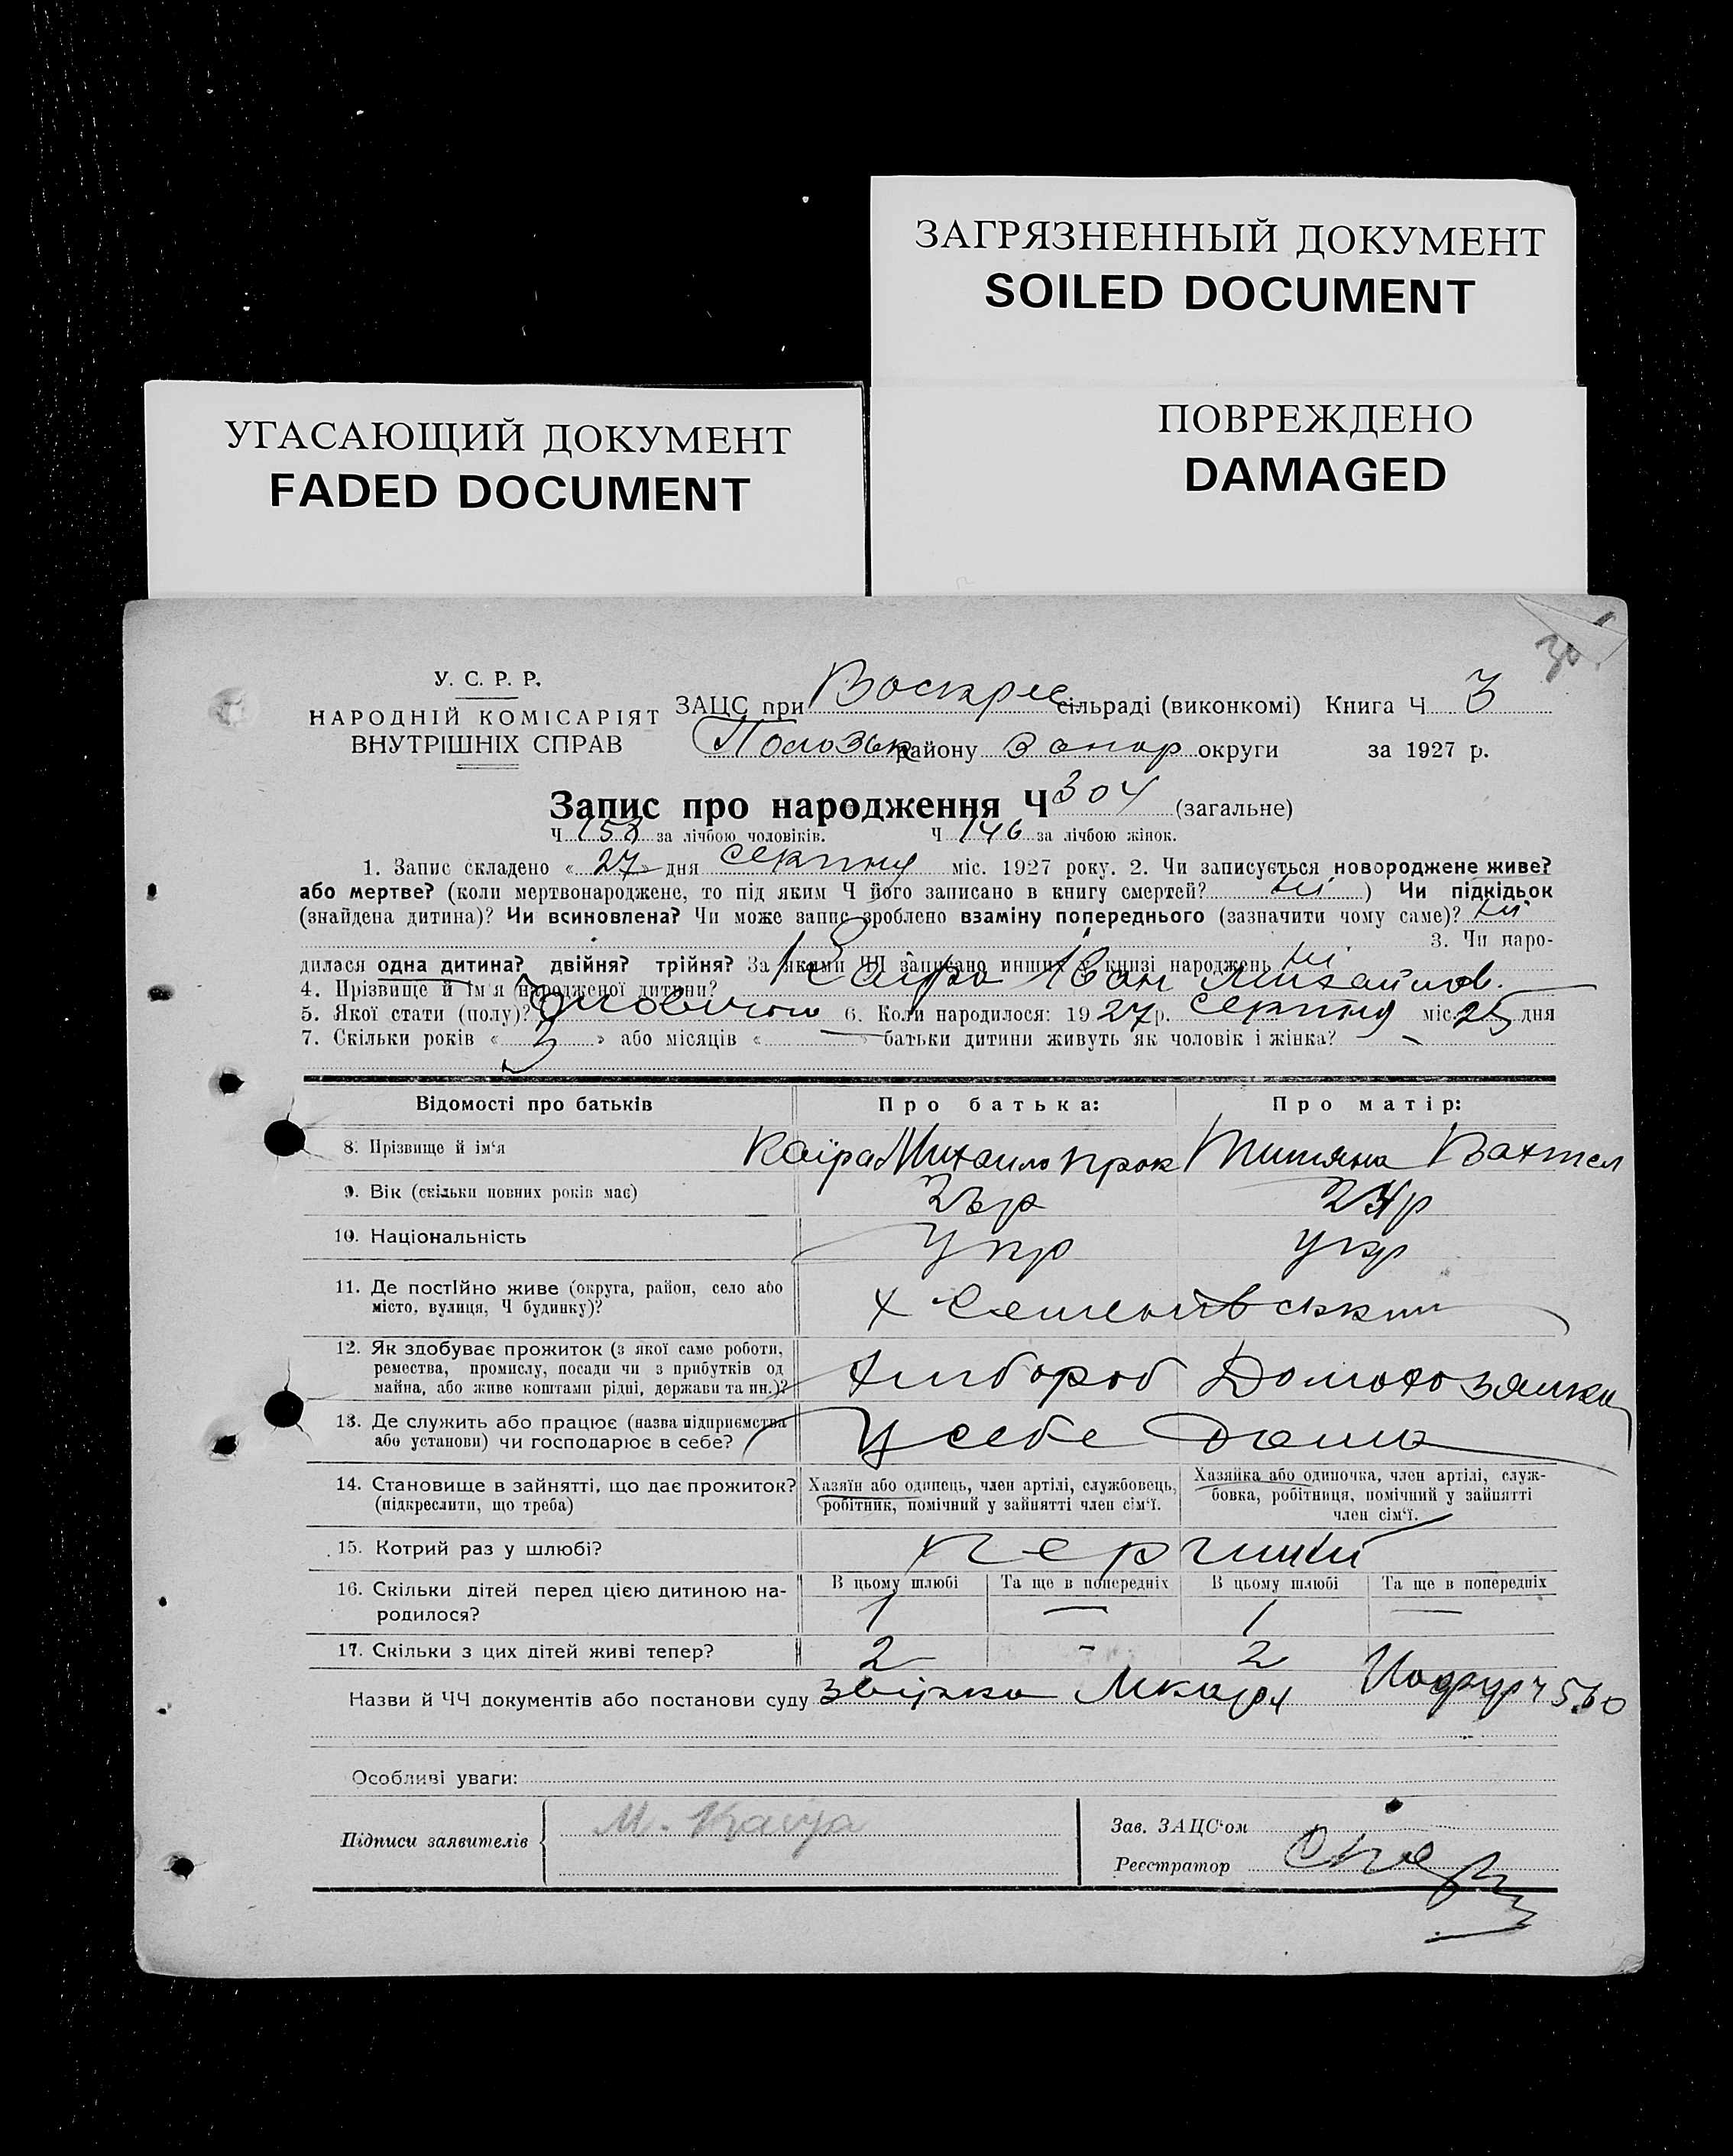 ЗАГРЯЗНЕННЫЙ ДОКУМЕНТ
SOILED DOCUMENT
УГАСАЮЩИЙ ДОКУМЕНТ
FADED DOCUMENT
ПОВРЕЖДЕНО
DAMAGED
У. С. Р. Р.
НАРОДНІЙ КОМІСАРІЯТ
ВНУТРІШНІХ СПРАВ
ЗАЦС при Воскрес сільраді (виконкомі) Книга Ч 3
Пологськ району Запор округи за 1927 р.
Запис про народження Ч 304 (загальне)
Ч 158 за лічбою чоловіків. Ч 146 за лічбою жінок.
1. Запис складено « 27 » дня серпня міс. 1927 року. 2. Чи записується новороджене живе?
або мертве? (коли мертвонароджене, то під яким Ч його записано в книгу смертей? ні ) Чи підкідьок
(знайдена дитина)? Чи всиновлена? Чи може запис зроблено взаміну попереднього (зазначити чому саме)? ні
3. Чи наро-
дилася одна дитина? двійня? трійня? За якими ЧЧ записано инших у книзі народжень ні
4. Прізвище й ім'я народженої дитини? Каїра Іван Михайлов.
5. Якої стати (полу)? Чоловічої 6. Коли народилося: 1927 р. серпня міс. 25 дня
7. Скільки років « 3 » або місяців « — » батьки дитини живуть як чоловік і жінка? —
Відомості про батьків Про батька: Про матір:
8. Прізвище й ім'я Каїра Михаило Прок Титяна Вахтел
9. Вік (скільки повних років має) 24р
10. Національність Укр укр
11. Де постійно живе (округа, район, село або
місто, вулиця, Ч будинку)? х Семенівський
12. Як здобуває прожиток (з якої саме роботи,
ремества, промислу, посади чи з прибутків од
майна, або живе коштами рідні, держави та ин.)? Хлібороб Домохозяйка
13. Де служить або працює (назва підприємства
або установи) чи господарює в себе? У себе дома
14. Становище в зайнятті, що дає прожиток?
(підкреслити, що треба)
Хазяїн або одинець, член артілі, службовець,
робітник, помічний у зайнятті член сім'ї.
Хазяйка або одиночка, член артілі, служ-
бовка, робітниця, помічний у зайнятті
член сім'ї.
15. Котрий раз у шлюбі? перший
16. Скільки дітей перед цією дитиною на-
родилося?
В цьому шлюбі Та ще в попередніх В цьому шлюбі Та ще в попередніх
1 — 1 —
17. Скільки з цих дітей живі тепер? 2 - 2
Назви й ЧЧ документів або постанови суду
Особливі уваги:
Підписи заявителів М. Каіра
Зав. ЗАЦС'ом
Реєстратор